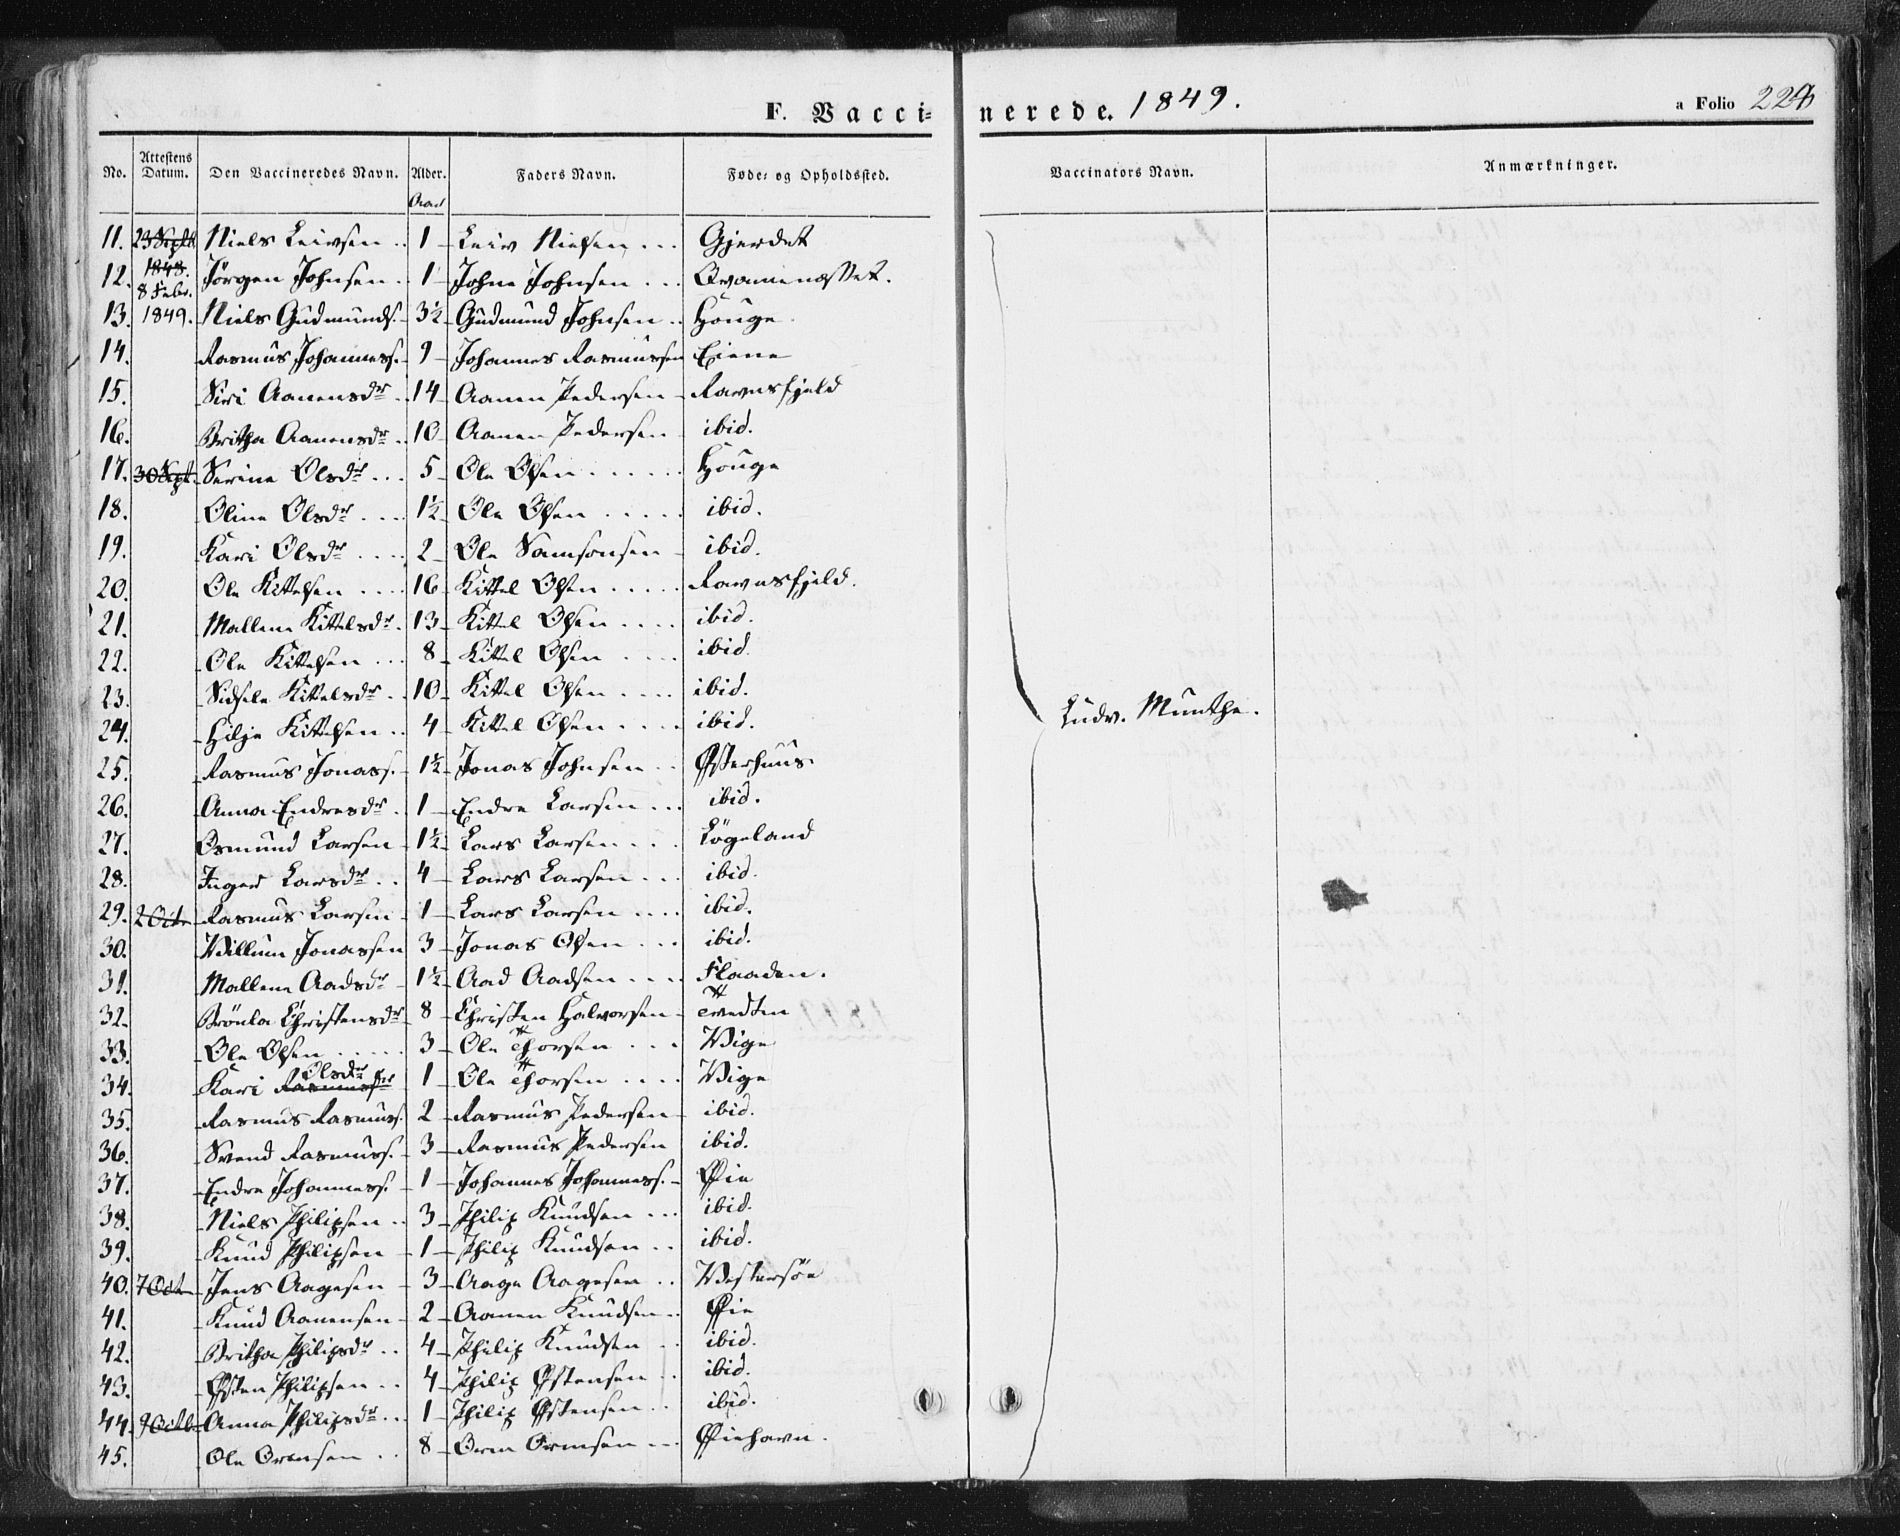 F. Vaccinerede. 1849.
a Folio
No. Attestens Datum. Den Vaccineredes Navn. Alder. Faders Navn. Føde- og Opholdssted. Vaccinators Navn. Anmærkninger.
Aar
11. 23 Sept. Niels Leivsen .. 1 Leiv Nielsen ... Gjerdet
1848.
12. Jörgen Johnsen .. 1 Johne Johnsen ...
8 Febr.
13. 1849. Niels Gudmunds. 3½ Gudmund Johnsen .. Houge
14. Rasmus Johanness. 9 Johannes Rasmussen Eiene
15. Siri Aanensdr .. 14 Aanen Pedersen Ravnsfjeld
16. Britha Aanensdr .. 10 Aanen Pedersen ibid.
17. 30 Sept. Serine Olsdr ... 5 Ole Olsen ...... Houge
18. Oline Olsdr .... 1½ Ole Olsen ..... ibid.
19. Kari Olsdr .... 2 Ole Samsonsen ibid.
20. Ole Kittelsen .... 16 Kittel Olsen ..... Ravnsfjeld.
21. Mallene Kittelsdr. 13 Kittel Olsen .... ibid.
22. Ole Kittelsen ... 8 Kittel Olsen .... ibid.
23. Sidsele Kittelsdr .. 10 Kittel Olsen .... ibid.
24. Hilje Kittelsen .. 4 Kittel Olsen .... ibid.
Ludv. Munthe.
25. Rasmus Jonass. 1½ Jonas Johnsen .. Østerhuus
26. Anna Endresdr .. 1 Endre Larsen ... ibid.
27. Osmund Larsen 1½ Lars Larsen .... Løgeland
28. Inger Larsdr .. 4 Lars Larsen ... ibid.
29. 2 Oct. Rasmus Larsen 1 Lars Larsen .... ibid.
30. Willum Jonassen 3 Jonas Olsen ... ibid.
31. Mallene Aadsdr 1½ Aad Aadsen .... Flaaden.
32. Brönla Christensdr 8 Christen Halvorsen Tvedten
33. Ole Olsen ..... 3 Ole Thorsen ... Vige
34. Kari Rasmusdr Olsdr 1 Ole Thorsen .... Vige
35. Rasmus Rasmuss. 2 Rasmus Pedersen ibid.
36. Svend Rasmuss. 3 Rasmus Pedersen ibid.
37. Endre Johanness. 1 Johannes Johanness. Øie
38. Niels Philipsen .. 3 Philip Knudsen ... ibid.
39. Knud Philipsen 1 Philip Knudsen .. ibid.
40. 7 Oct. Jens Aagesen 3 Aage Aagesen .. Vestersøe
41. Knud Aanensen 2 Aanen Knudsen .. Øie
42. Britha Philipsdr .. 4 Philip Knudsen .. ibid.
43. Østen Philipsen .. 4 Philip Østensen .. ibid.
44. 9 Octb. Anna Philipsdr .. 1 Philip Østensen .. ibid.
45. Ole Ormsen .. 8 Orm Ormsen ... Øiehavn.